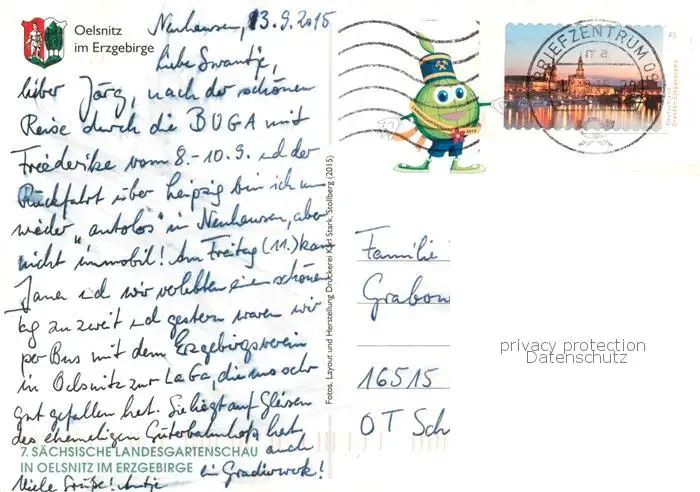 Oelsnitz
im Erzgebirge
Neuhausen, 13.9.2015
Liebe Swantje,
lieber Jörg, nach der schönen
Reise durch die BUGA mit
Friederike vom 8.-10.9. u d der
Rückfahrt über Leipzig bin ich nun
wieder "autolos" in Neuhausen, aber
nicht immobil! Am Freitag (11.) kam
Jana u d wir verlebten einen schönen
Tag zu zweit u d gestern waren wir
per Bus mit dem Erzgebirgsverein
in Oelsnitz zur LaGa, die uns sehr
gut gefallen hat. Sie liegt auf Gleisen
des ehemaligen Güterbahnhofs hat
auch
ein Gradierwerk!
Viele Grüße! Antje
7. SÄCHSISCHE LANDESGARTENSCHAU
IN OELSNITZ IM ERZGEBIRGE
Fotos, Layout und Herstellung Druckerei Karl Stark, Stollberg (2015)
LANDESGARTENSCHAU 2015
BRIEFZENTRUM 09
ma
45
Deutschland
Dresden Elbpanorama
Familie
Grabow
16515
OT Sch
privacy protection
Datenschutz